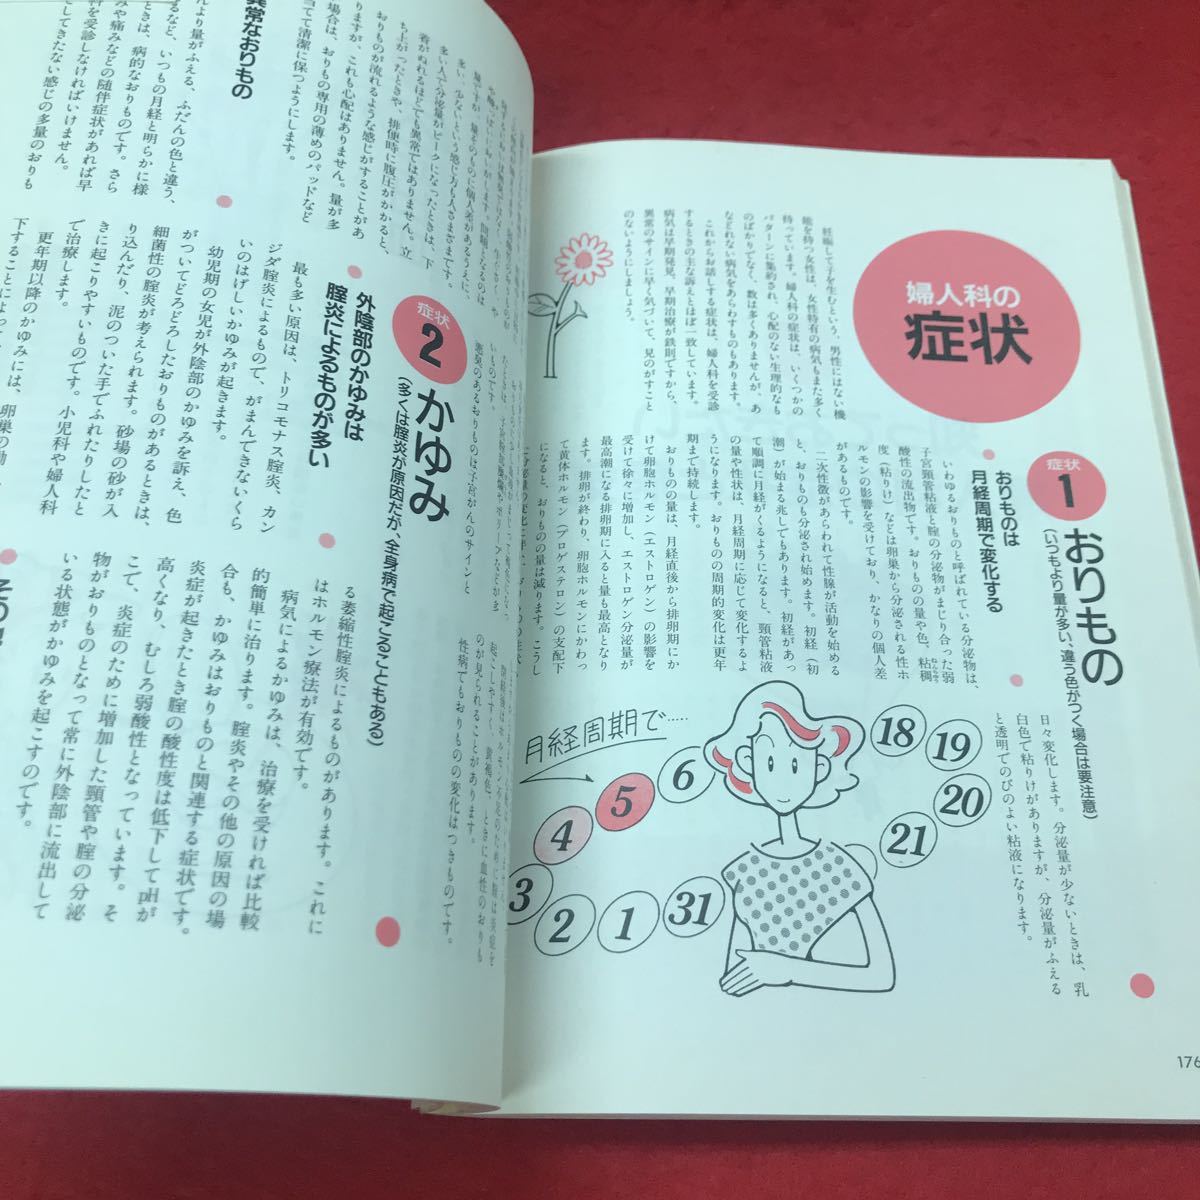 婦人科の
症状
妊娠して子を生むという、男性にはない機
能を持つ女性は、女性特有の病気もまた多く
持っています。婦人科の症状は、いくつかの
パターンに集約され、心配のない生理的なも
のばかりでなく、数は多くありませんが、あ
などれない病気をあらわすものもあります。
これからお話しする症状は、婦人科を受診
するときの主な訴えとほぼ一致しています。
病気は早期発見、早期治療が鉄則ですから、
異常のサインに早く気づいて、見のがすこと
のないようにしましょう。
症状
1
おりもの
(いつもより量が多い、違う色がつく場合は要注意)
おりものは
月経周期で変化する
いわゆるおりものと呼ばれている分泌物は、
子宮頸管粘液と腟の分泌物がまじり合った弱
酸性の流出物です。おりものの量や色、粘稠
度(粘りけ)などは卵巣から分泌される性ホ
ルモンの影響を受けており、かなりの個人差
があるものです。
二次性徴があらわれて性腺が活動を始める
と、おりものも分泌され始めます。初経(初
潮)が始まる兆しでもあります。初経があっ
て順調に月経がくるようになると、頸管粘液
の量や性状は、月経周期に応じて変化するよ
うになります。おりものの周期的変化は更年
期まで持続します。
おりものの量は、月経直後から排卵期にか
けて卵胞ホルモン(エストロゲン)の影響を
受けて徐々に増加し、エストロゲン分泌量が
最高潮になる排卵期に入ると量も最高となり
ます。排卵が終わり、卵胞ホルモンにかわっ
て黄体ホルモン(プロゲステロン)の支配下
になると、おりものの量は減ります。こうし
日々変化します。分泌量が少ないときは、乳
白色で粘りけがありますが、分泌量がふえる
と透明でのびのよい粘液になります。
月経周期で……
18
19
20
21
6
5
4
3
2
1
31
176
多い、少ないという感じ方も人さまざまです。
多い人で分泌量がピークになったときは、下
着がぬれるほどでも異常ではありません。立
ち上がったときや、排便時に腹圧がかかると、
おりものが流れるような感じがすることがあ
りますが、これも心配はありません。量が多
い場合は、おりもの専用の薄めのパッドなど
当てて清潔に保つようにします。
異常なおりもの
だんより量がふえる、ふだんの色と違う、
るなど、いつもの月経と明らかに様
ときは、病的なおりものです。さら
みや痛みなどの随伴症状があれば早
科を受診しなければいけません。
してきたない感じの多量のおりも
悪臭のあるおりものは子宮がんのサインと
のが見られることがあります。
性病でもおりものの変化はつきものです。
症状
2
かゆみ
(多くは腟炎が原因だが、全身病で起こることもある)
外陰部のかゆみは
腟炎によるものが多い
最も多い原因は、トリコモナス腟炎、カン
ジダ腟炎によるもので、がまんできないくら
いのはげしいかゆみが起きます。
幼児期の女児が外陰部のかゆみを訴え、色
がついてどろどろしたおりものがあるときは、
細菌性の腟炎が考えられます。砂場の砂が入
り込んだり、泥のついた手でふれたりしたと
きに起こりやすいものです。小児科や婦人科
で治療します。
更年期以降のかゆみには、卵巣の働
下することによっ
る萎縮性腟炎によるものがあります。これに
はホルモン療法が有効です。
病気によるかゆみは、治療を受ければ比較
的簡単に治ります。腟炎やその他の原因の場
合も、かゆみはおりものと関連する症状です。
炎症が起きたとき腟の酸性度は低下してpHが
高くなり、むしろ弱酸性となっています。そ
こで、炎症のために増加した頸管や腟の分泌
物がおりものとなって常に外陰部に流出して
いる状態がかゆみを起こすのです。